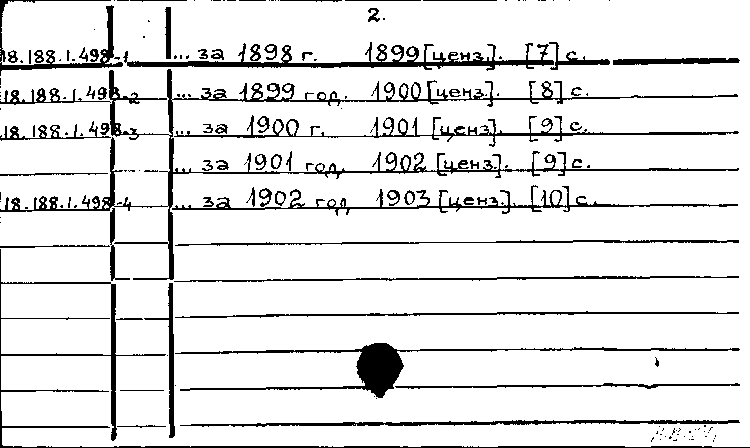 2.
18.188.1.498-1 ... за 1898 г. 1899 [ценз.]. [7] с.
18.188.1.498-2 ... за 1899 год. 1900 [ценз]. [8] с.
18.188.1.498-3 ... за 1900 г. 1901 [ценз]. [9] с.
... за 1901 год. 1902 [ценз]. [9] с.
18.188.1.498-4 ... за 1902 год 1903 [ценз.]. [10] с.